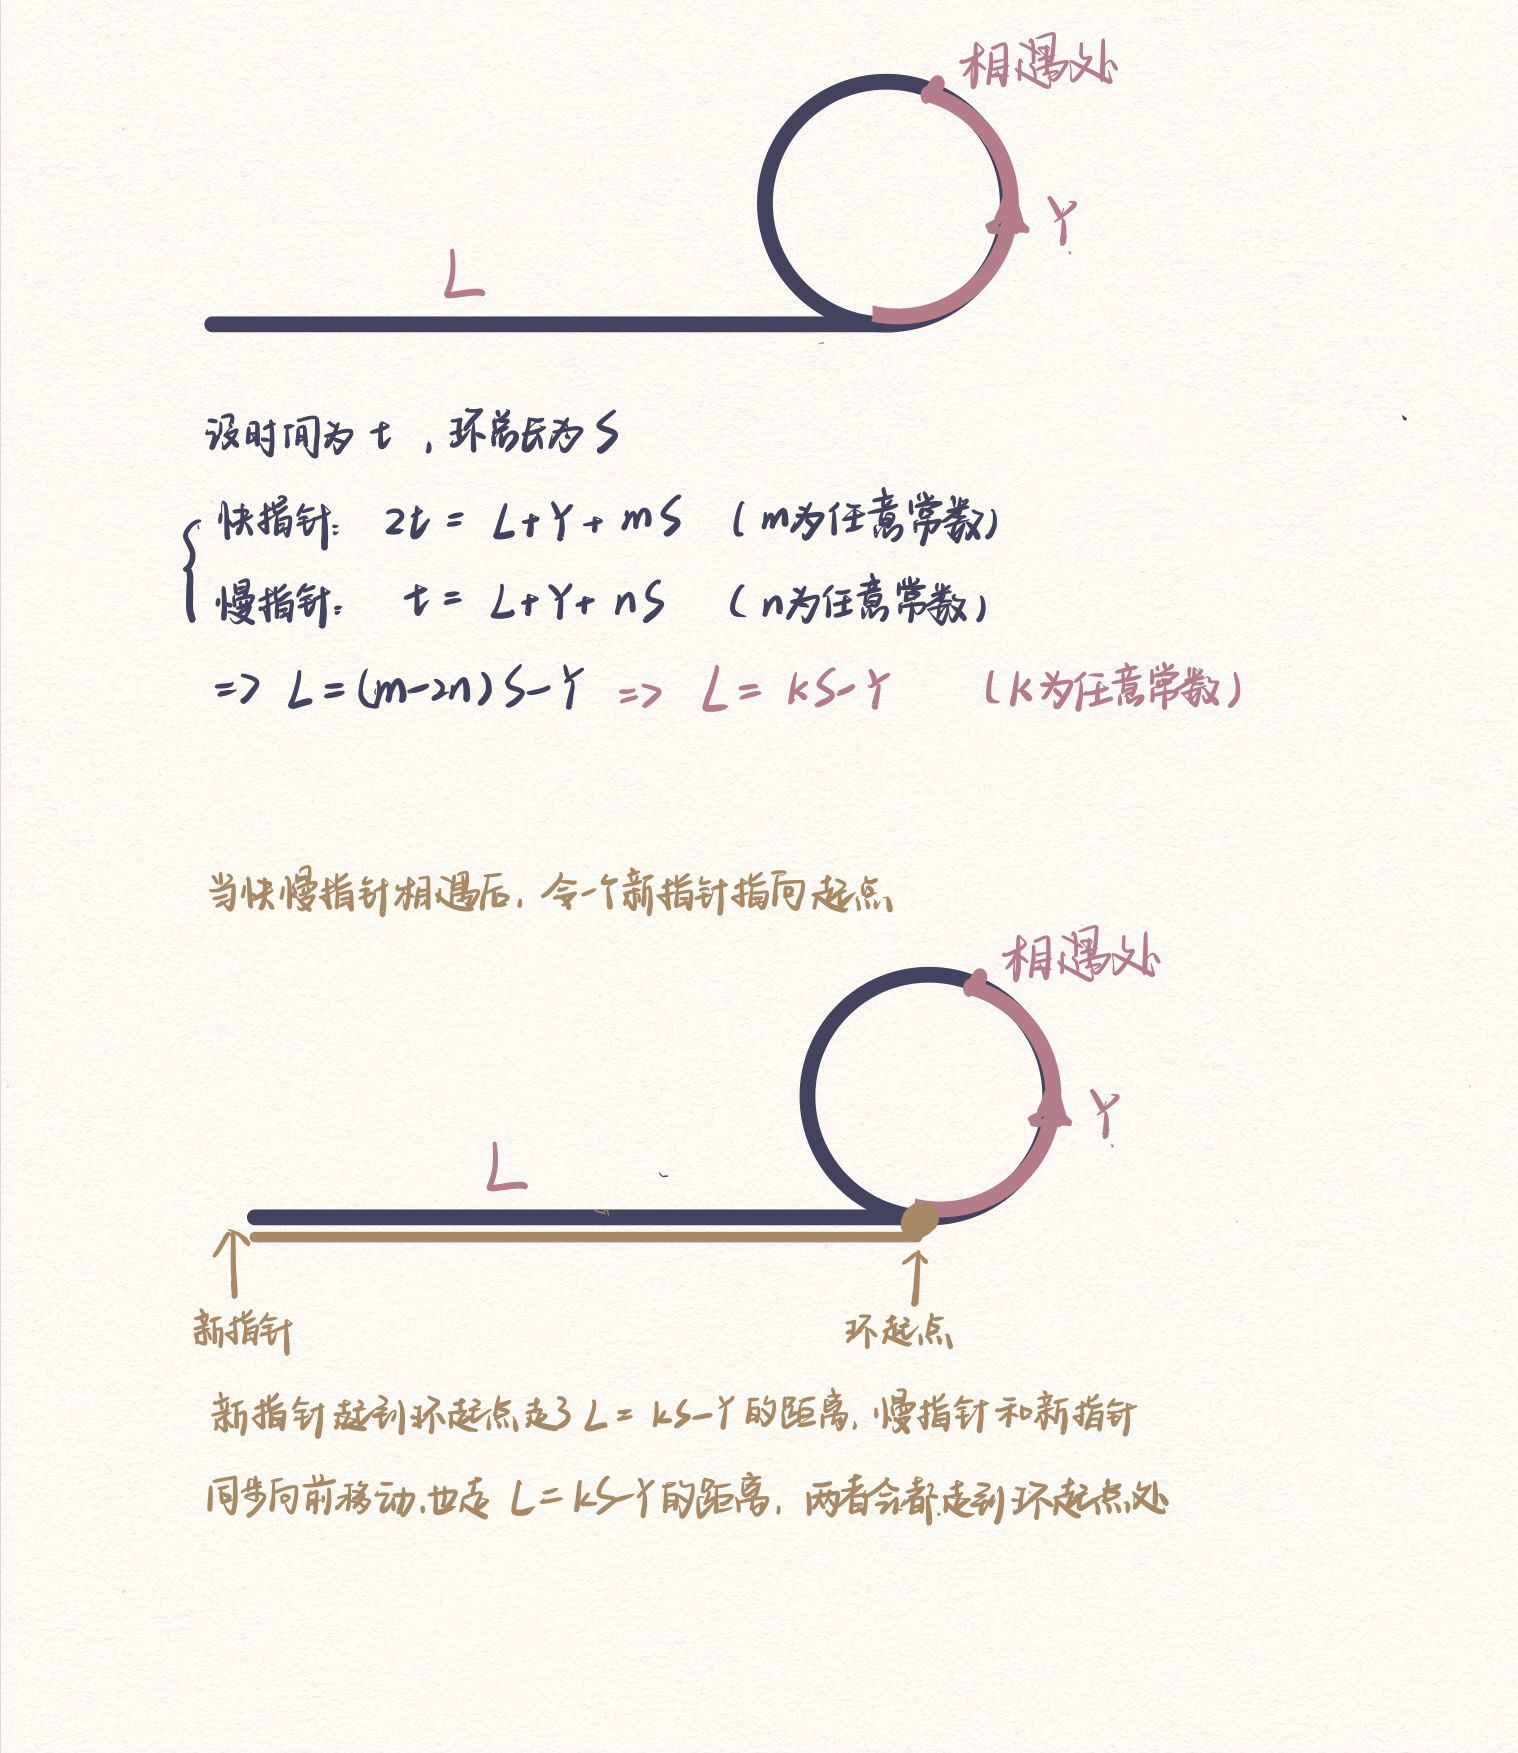 相遇处
Y
L
设时间为 t ，环总长为 S
快指针： 2t = L+Y+mS （m为任意常数）
慢指针： t = L+Y+nS （n为任意常数）
=> L=(m-2n)S-Y => L= kS-Y （k为任意常数）
当快慢指针相遇后，令一个新指针指向起点
相遇处
Y
L
新指针
环起点
新指针起到环起点走了 L= kS-Y 的距离，慢指针和新指针
同步向前移动，也走 L=kS-Y的距离，两者会都走到环起点处